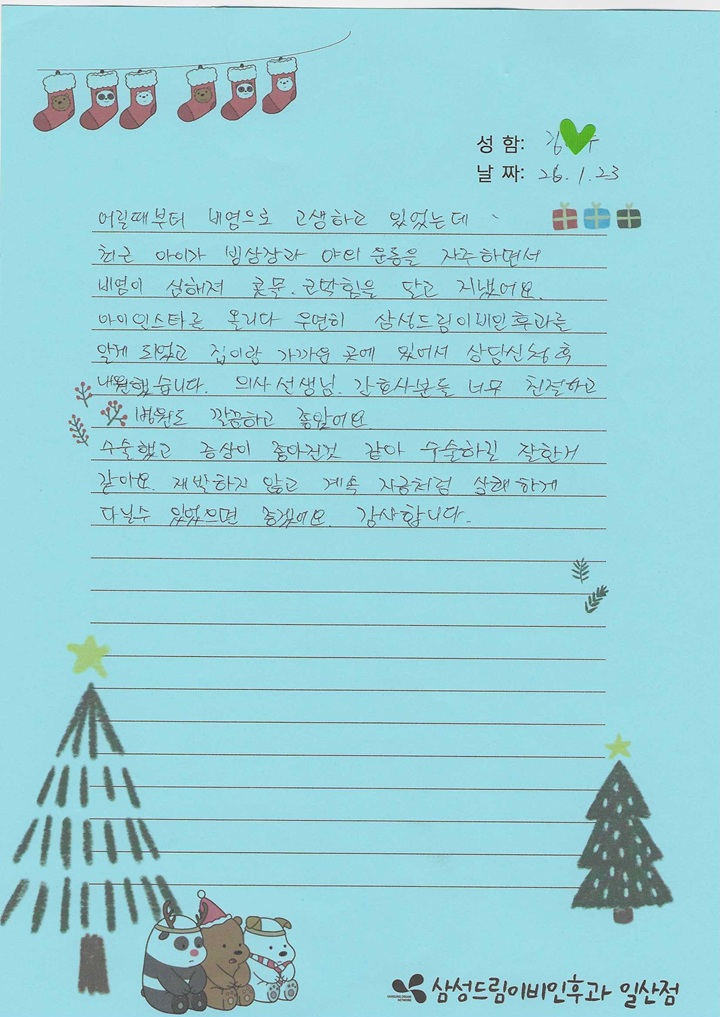 성 함: 김
날 짜: 26.1.23
어릴때부터 비염으로 고생하고 있었는데
최근 아이가 빙상장과 야외 운동을 자주하면서
비염이 심해져 콧물.코막힘을 달고 지냈어요.
아이인스타를 올리다 우연히 삼성드림이비인후과를
알게 되었고 집이랑 가까운 곳에 있어서 상담신청후
내원했습니다. 의사선생님. 간호사분들 너무 친절하고
병원도 깔끔하고 좋았어요
수술했고 증상이 좋아진것 같아 수술하길 잘한거
같아요. 재발하지 않고 계속 지금처럼 상쾌하게
다닐수 있었으면 좋겠어요. 감사합니다.
삼성드림이비인후과 일산점